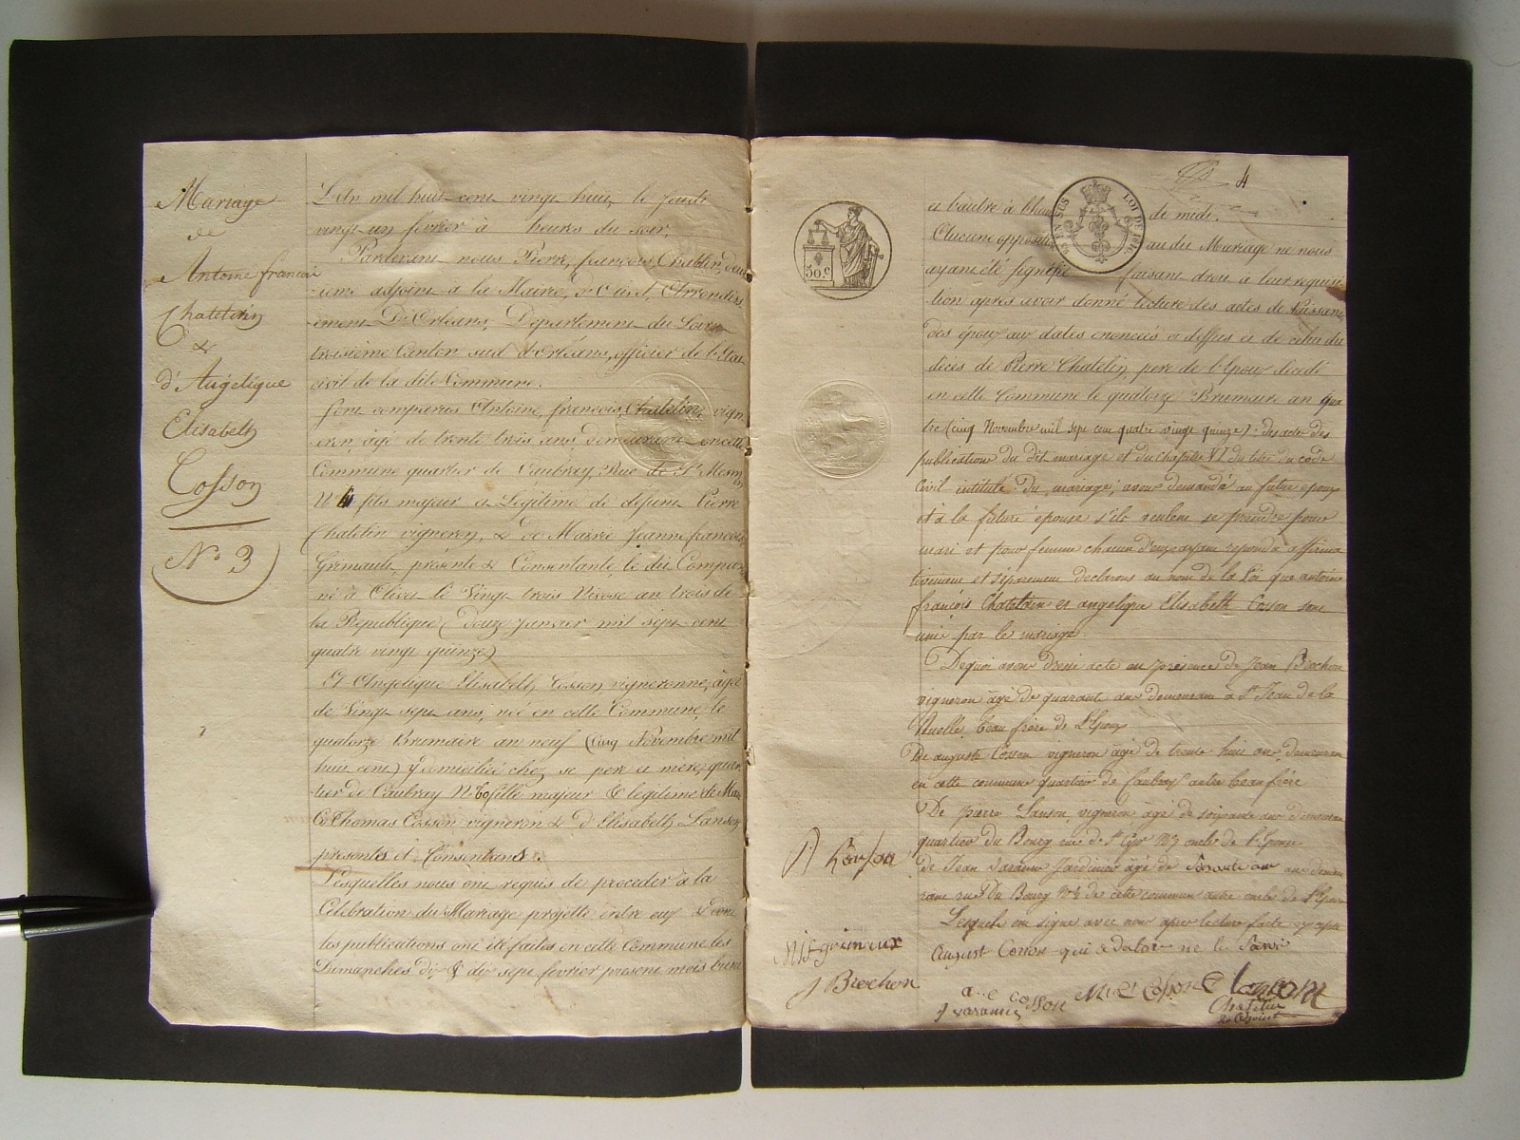 Mariage
de
Antoine francois
Chatelin
&
d'Angélique
Elisabeth
Cosson
N° 3
L'an mil huit cent vingt huit, le Jeudi
vingt un fevrier à heures du soir,
Pardevant nous Pierre, françois Chablin, deux
-ieme adjoint à la Mairie, d'Olivet, Arrondiss
-ement D'Orléans, Departement du Loiret
troisième Canton sud d'orléans, officier de l'Etat
civil de la dite Commune.
Sont comparus Antoine, francois, Chatelin, vign
eron, âgé de trente trois ans demeurant en cette
Commune quartier de Caubray, Rue de St Mesm
N° 4 fils majeur et Légitime de défunt Pierre
Chatelin vigneron, & de Marie Jeanne françoise
Grimault, présente & Consentante, le dit Compa
né à Olivet le Vingt trois Nivose an trois de
la République (douze Janvier mil sept cent
quatre vingt quinze)
Et Angelique Elisabeth Cosson vigneronne, âgé
de Vingt sept ans, née en cette Commune, le
quatorze Brumaire an neuf (cinq Novembre mil
huit cent) y domiciliée chez se pere et mere, quar
tier de Caubray N° 60 fille majeur & legitime de
Thomas Cosson vigneron & d'Elisabeth Lanson
presentes et Consentans.
Lesquelles nous ont requis de proceder à la
Célébration du Mariage projetté entre eux & dont
les publications ont été faites en cette Commune les
Dimanches dix & dix sept fevrier present mois
4
et l'autre à l'heure de midi.
Aucune opposition au du Mariage ne nous
ayant été signifié faisant droit a leur requisi
-tion après avoir donné lecture des actes de Naissance
des époux aux dates enoncées ci dessus et de celui du
décès de Pierre Chatelin, pere de l'Epoux décédé
en cette Commune le quatorze Brumaire an qua
tre (cinq Novembre mil sept cent quatre vingt quinze). des actes des
publications du dit mariage et du chapitre VI du titre du code
Civil intitulé du mariage; avons demandé au futur epoux
et à la future épouse s'ils veulent se prendre pour
mari et pour femme chacun d'eux ayant repondu affirma
tivement et séparement declarons au nom de la Loi que antoine
françois Chatelain et angelique Elisabeth Cosson sont
unis par le mariage
De quoi avons dressé acte en présence de Jean Brochon
vigneron âgé de quarante ans demeurant à St Jean de la
Ruelle, beau frère de l'Epoux
De auguste Cosson vigneron âgé de trente huit ans, demeurant
en cette commune quartier de Caubray autre beau frère
De pierre Lanson, vigneron âgé de soixante ans demeurant
quartier du Bourg rue de St Cyr N° 7 oncle de l'Epouse
de Jean Jardinier âgé de ans demeu
rant rue du Bourg N° de cette commune autre oncle de l'Epouse
Lesquels ont signé avec nous après lecture faite
August Cosson qui a déclaré ne le Savoir
P Lanson
J Brochon
Cosson
Chatelin
30.c